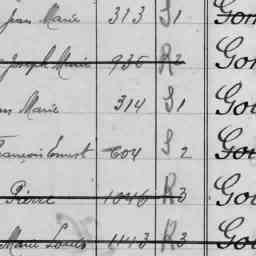 Jean Marie 313 S1 Gou
Joseph Marie 935 R2 Gou
Marie 314 S1 Gou
François Ernest 604 S2 Gou
Pierre 1046 R3 Gou
Marie Louis 1143 R3 Gou